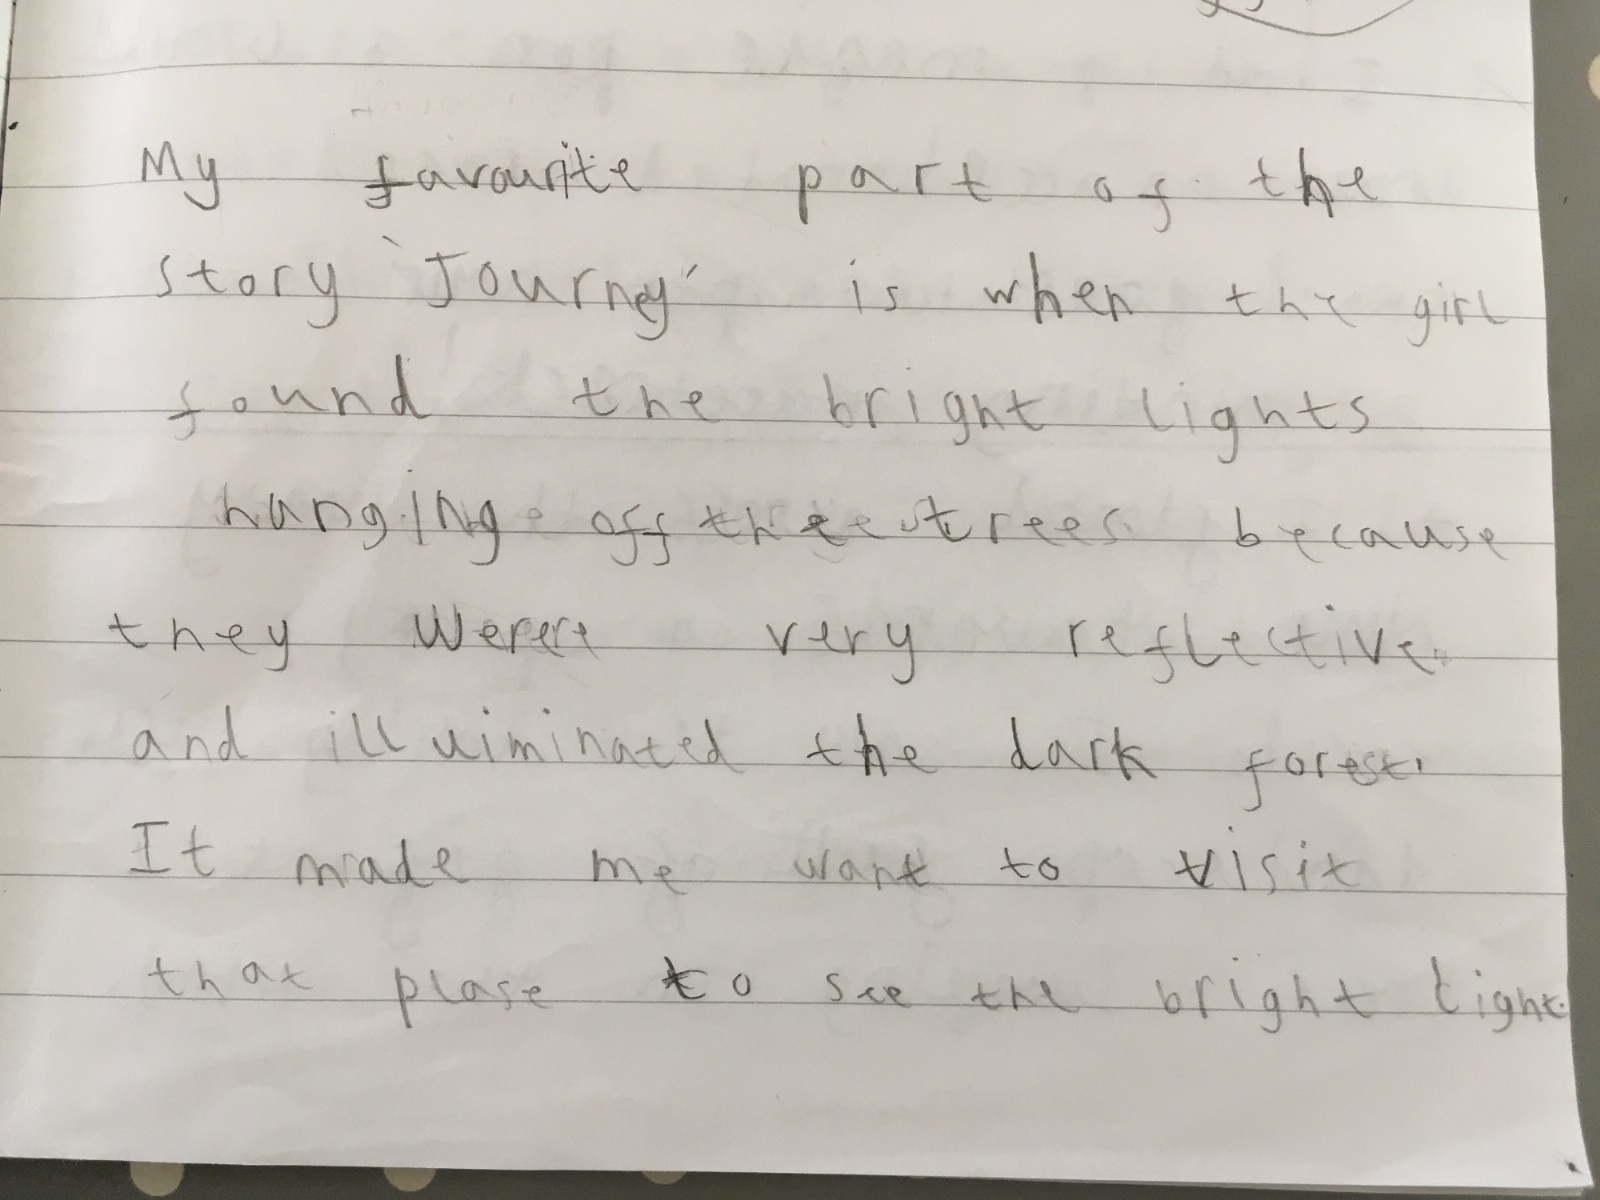 My favourite part of the
story 'Journey' is when the girl
found the bright lights
hanging off the trees because
they were very reflective
and illuiminated the dark forest.
It made me want to visit
that plase to see the bright light.